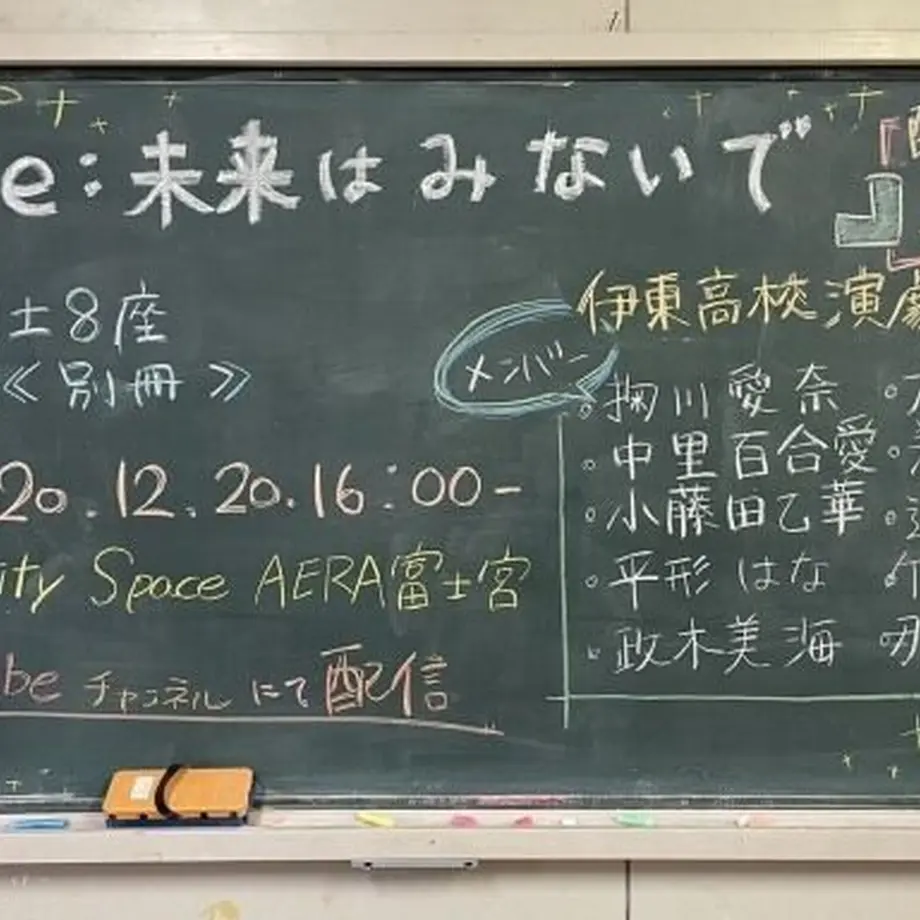 e:未来はみないで
士8座
≪別冊≫
20.12.20.16:00-
ity Space AERA富士宮
be チャンネルにて配信
メンバー
伊東高校演劇
。掬川愛奈
。中里百合愛
。小藤田乙華
。平形はな
。政木美海